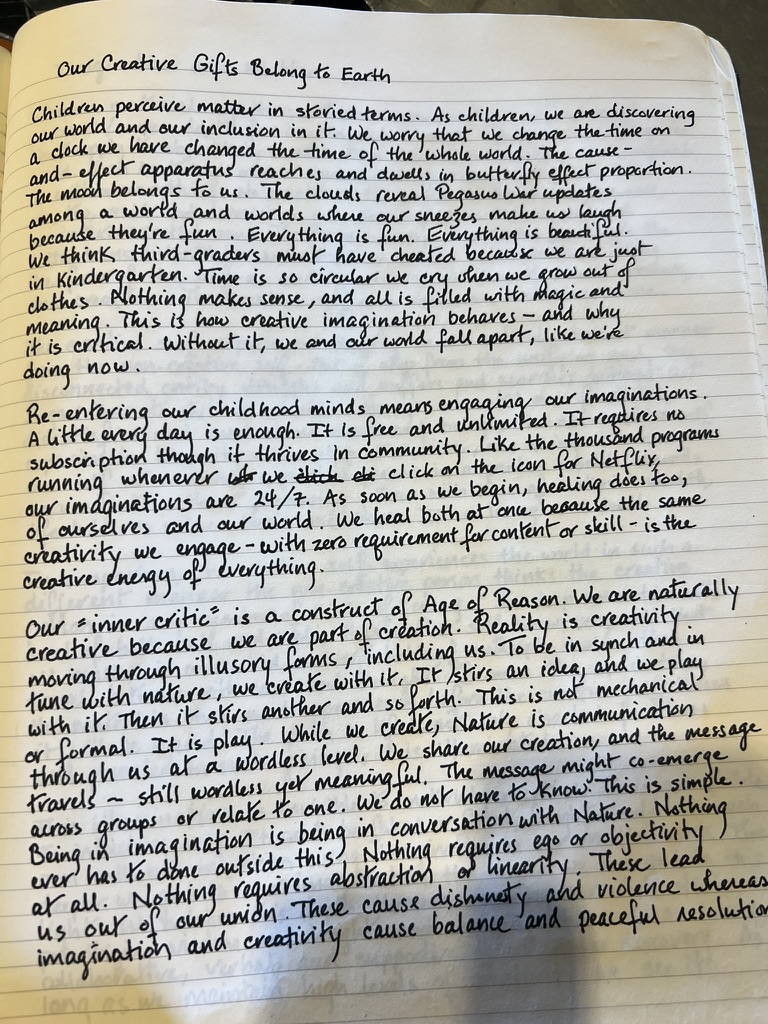 Our Creative Gifts Belong to Earth
Children perceive matter in storied terms. As children, we are discovering
our world and our inclusion in it. We worry that we change the time on
a clock we have changed the time of the whole world. The cause-
and-effect apparatus reaches and dwells in butterfly effect proportion.
The moon belongs to us. The clouds reveal Pegasus War updates
among a world and worlds where our sneezes make us laugh
because they're fun. Everything is fun. Everything is beautiful.
We think third-graders must have cheated because we are just
in Kindergarten. Time is so circular we cry when we grow out of
clothes. Nothing makes sense, and all is filled with magic and
meaning. This is how creative imagination behaves – and why
it is critical. Without it, we and our world fall apart, like we're
doing now.
Re-entering our childhood minds means engaging our imaginations.
A little every day is enough. It is free and unlimited. It requires no
subscription though it thrives in community. Like the thousand programs
running whenever we click on the icon for Netflix,
our imaginations are 24/7. As soon as we begin, healing does too,
of ourselves and our world. We heal both at once because the same
creativity we engage – with zero requirement for content or skill – is the
creative energy of everything.
Our "inner critic" is a construct of Age of Reason. We are naturally
creative because we are part of creation. Reality is creativity
moving through illusory forms, including us. To be in synch and in
tune with nature, we create with it. It stirs an idea, and we play
with it. Then it stirs another and so forth. This is not mechanical
or formal. It is play. While we create, Nature is communication
through us at a wordless level. We share our creation, and the message
travels – still wordless yet meaningful. The message might co-emerge
across groups or relate to one. We do not have to know. This is simple.
Being in imagination is being in conversation with Nature. Nothing
ever has to done outside this. Nothing requires ego or objectivity
at all. Nothing requires abstraction or linearity. These lead
us out of our union. These cause dishonesty and violence whereas
imagination and creativity cause balance and peaceful resolution